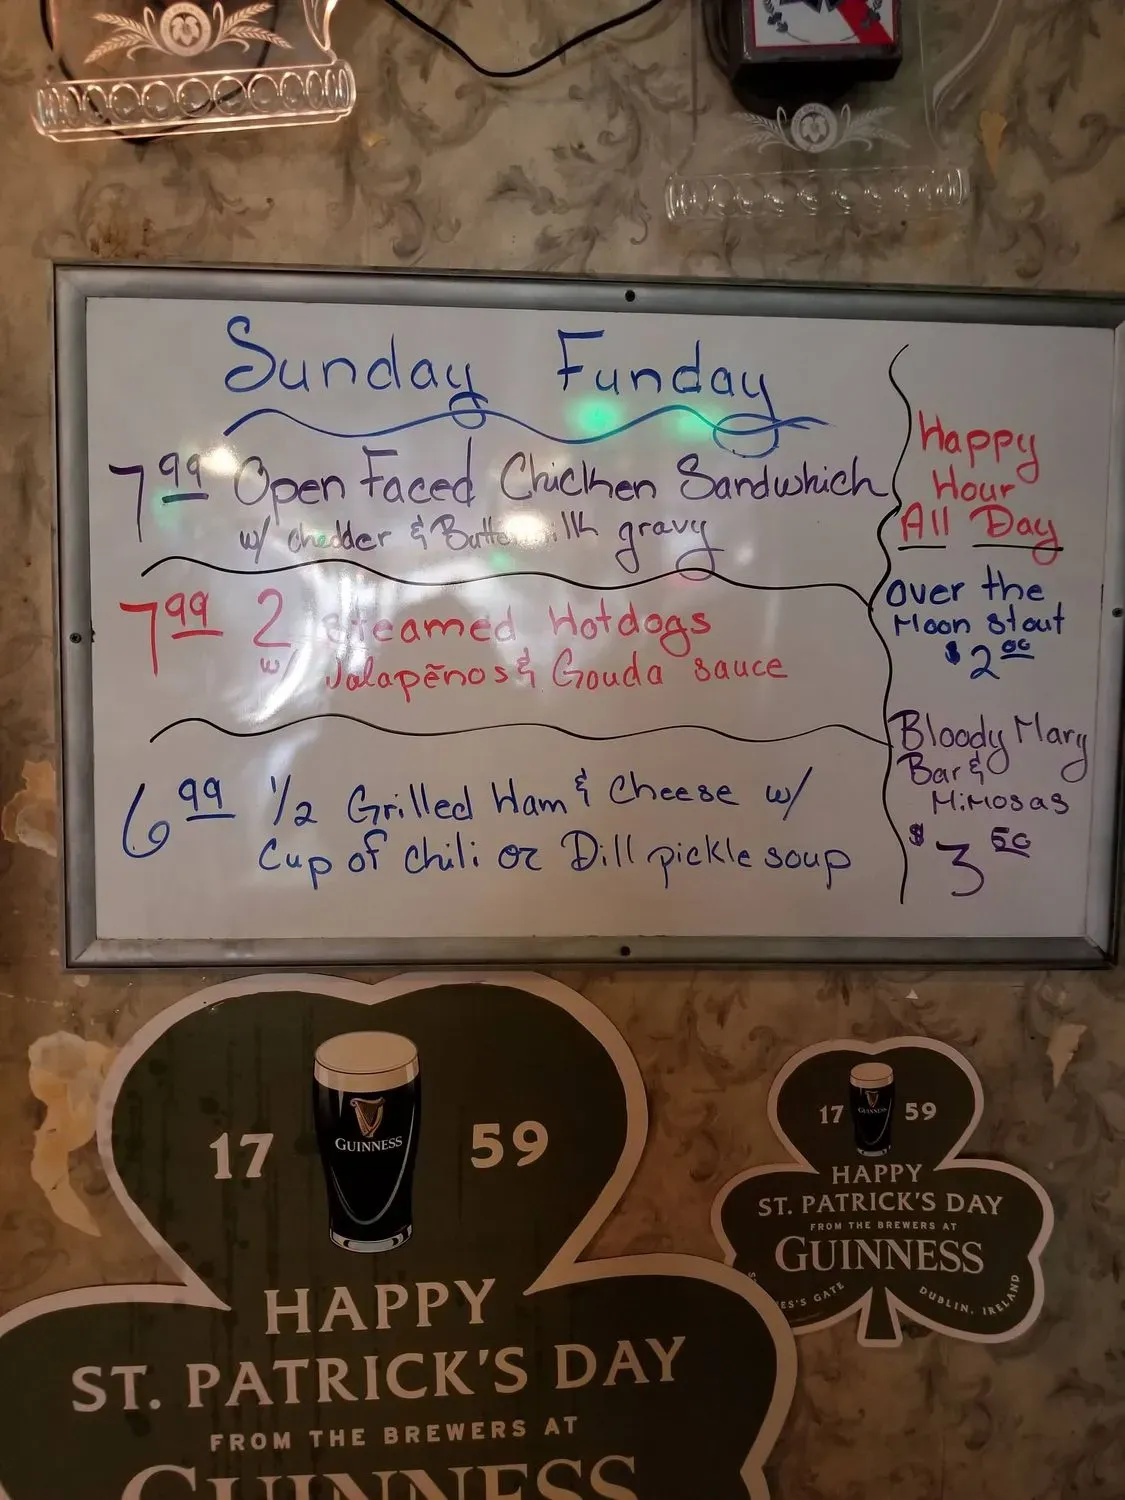 Sunday Funday
7.99 Open Faced Chicken Sandwhich
w/ chedder & Buttermilk gravy
7.99 2 Steamed Hotdogs
w/ Jalapēnos & Gouda sauce
6.99 1/2 Grilled Ham & Cheese w/
Cup of chili or Dill pickle soup
Happy
Hour
All Day
Over the
Moon Stout
$2.00
Bloody Mary
Bar &
Mimosas
$3.50
17 59
GUINNESS
HAPPY
ST. PATRICK'S DAY
FROM THE BREWERS AT
GUINNESS
17 59
GUINNESS
HAPPY
ST. PATRICK'S DAY
FROM THE BREWERS AT
GUINNESS
GATE DUBLIN, IRELAND